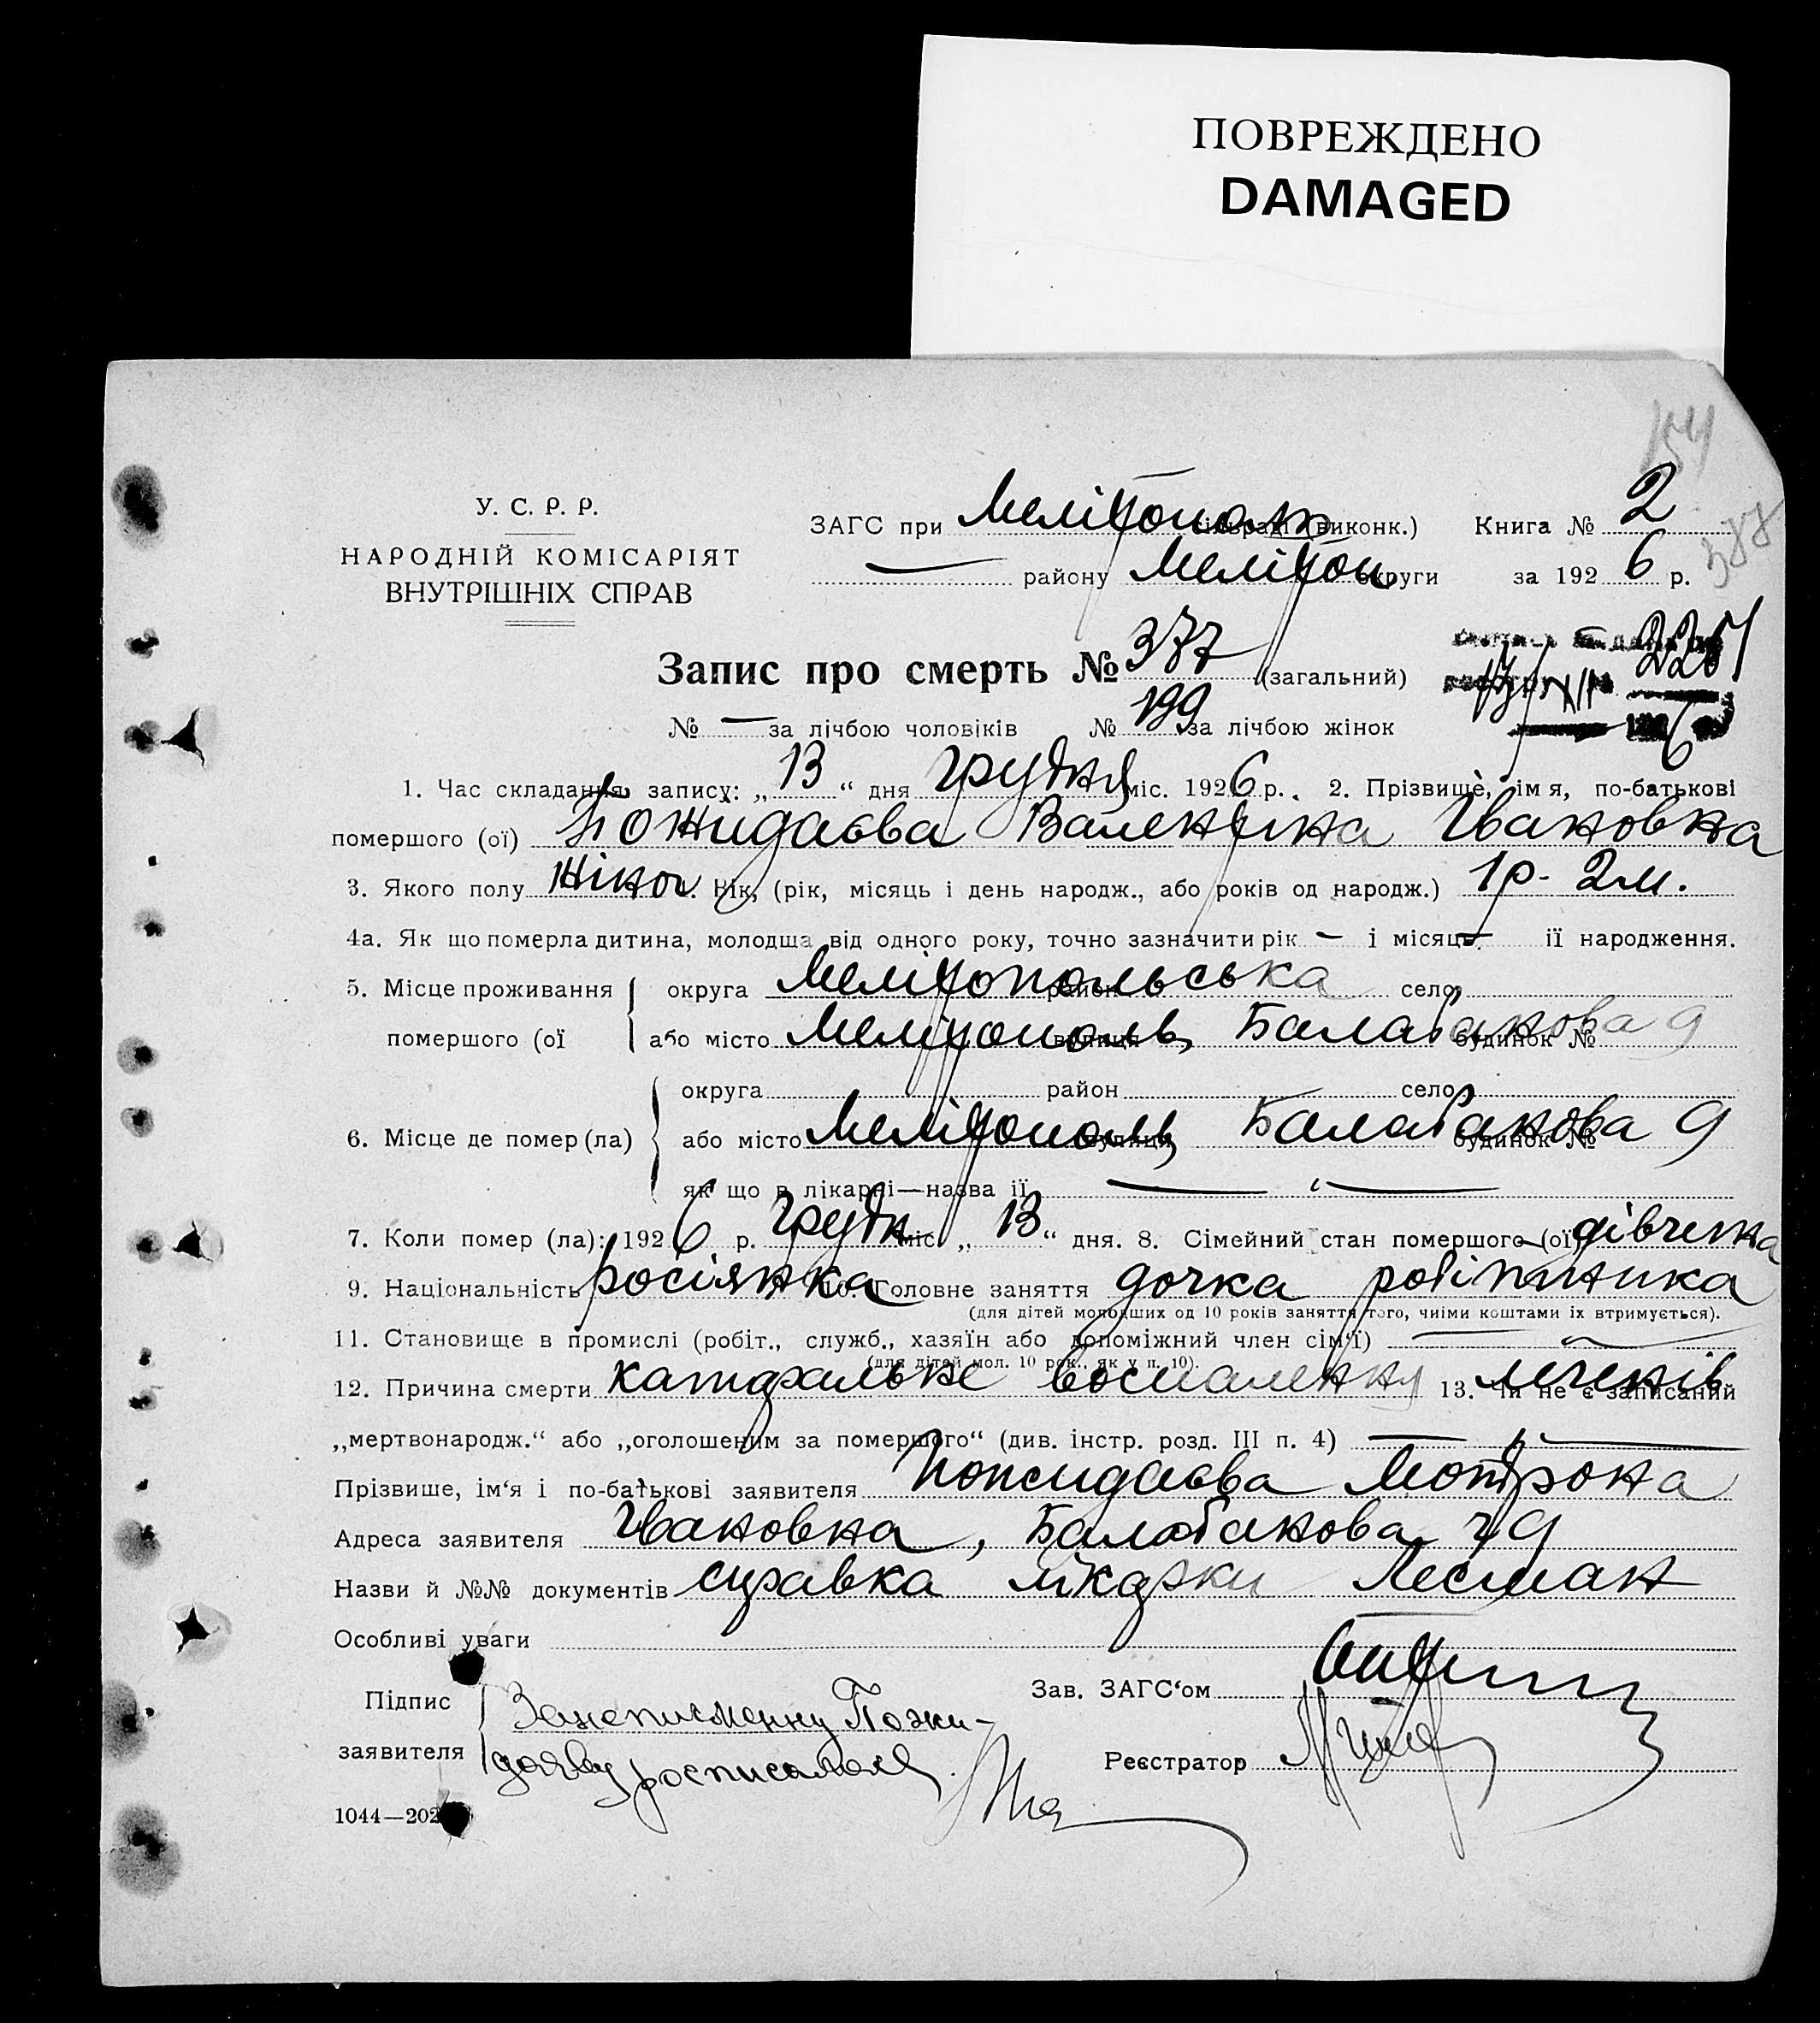 ПОВРЕЖДЕНО
DAMAGED
154
У. С. Р. Р.
НАРОДНІЙ КОМІСАРІЯТ
ВНУТРІШНІХ СПРАВ
ЗАГС при Мелітополь сільраді (виконк.) Книга № 2
— району Мелітоп округи за 1926 р.
388
Запис про смерть № 377 (загальний)
2251
13/XII
6
№ — за лічбою чоловіків № 199 за лічбою жінок
1. Час складання запису: „13“ дня грудня міс. 1926 р. 2. Прізвище, імя, по-батькові
помершого (ої) Пожидаєва Валентина Івановна
3. Якого полу жіноч. Вік, (рік, місяць і день народж., або років од народж.) 1р. 2м.
4а. Як що померла дитина, молодша від одного року, точно зазначити рік — і місяць — ії народження.
5. Місце проживання округа Мелітопольська район село
помершого (ої або місто Мелітополь, вулиця Балабанова будинок № 9
округа район село
6. Місце де помер (ла) або місто Мелітополь, вулиця Балабанова будинок № 9
як що в лікарні—назва ії — „ —
7. Коли помер (ла): 1926 р. грудн міс. „13“ дня. 8. Сімейний стан помершого (ої) дівчина
9. Національність росіянка 10. Головне заняття дочка робітника
(для дітей молодших од 10 років заняття того, чиїми коштами їх втримується).
11. Становище в промислі (робіт., служб., хазяїн або допоміжний член сім'ї) — „ —
(для дітей мол. 10 рок., як у п. 10).
12. Причина смерти катаральне воспалення легенів 13. Чи не є записаний
„мертвонародж.“ або „оголошеним за помершого“ (див. інстр. розд. III п. 4) — „ —
Прізвише, ім'я і по-батькові заявителя Пожидаєва Мотрона
Адреса заявителя Івановна, Балабанова ч 9
Назви й №№ документів справка лікарки Лесман
Особливі уваги
Підпис За неписменну Пожи-
заявителя даєву росписался
Зав. ЗАГС'ом
Реєстратор
1044—202